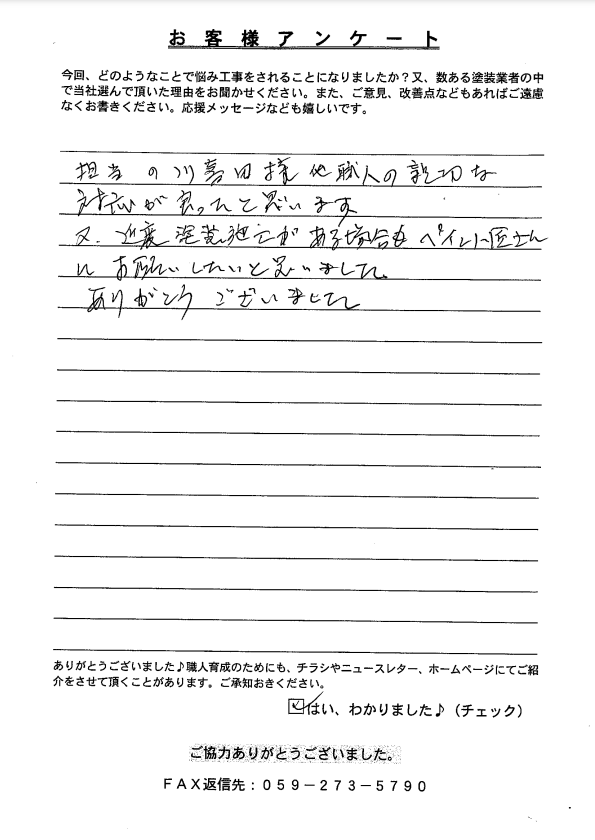 お客様アンケート
今回、どのようなことで悩み工事をされることになりましたか？又、数ある塗装業者の中
で当社選んで頂いた理由をお聞かせください。また、ご意見、改善点などもあればご遠慮
なくお書きください。応援メッセージなども嬉しいです。
担当の川喜田様他職人の親切な
対応が良ったと思います
又、塗装施工がある場合もペイント匠さん
にお願いしたいと思いました。
ありがとうございました
ありがとうございました♪職人育成のためにも、チラシやニュースレター、ホームページにてご紹
介をさせて頂くことがあります。ご承知おきください。
はい、わかりました♪（チェック）
ご協力ありがとうございました。
ＦＡＸ返信先：０５９－２７３－５７９０